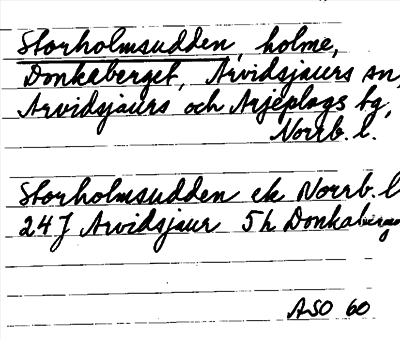 Storholmsudden, holme,
Donkaberget, Arvidsjaurs sn,
Arvidsjaurs och Arjeplogs tg,
Norrb. l.
Storholmsudden ek Norrb. l
24J Arvidsjaur 5h Donkaberge
ASO 60